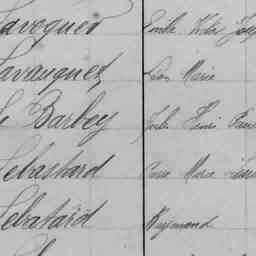 Lavoquer Emile
Lavauquet Léon Marie
Le Barbey Jules Henri
Lebastard Pierre Marie
Lebatard Raymond